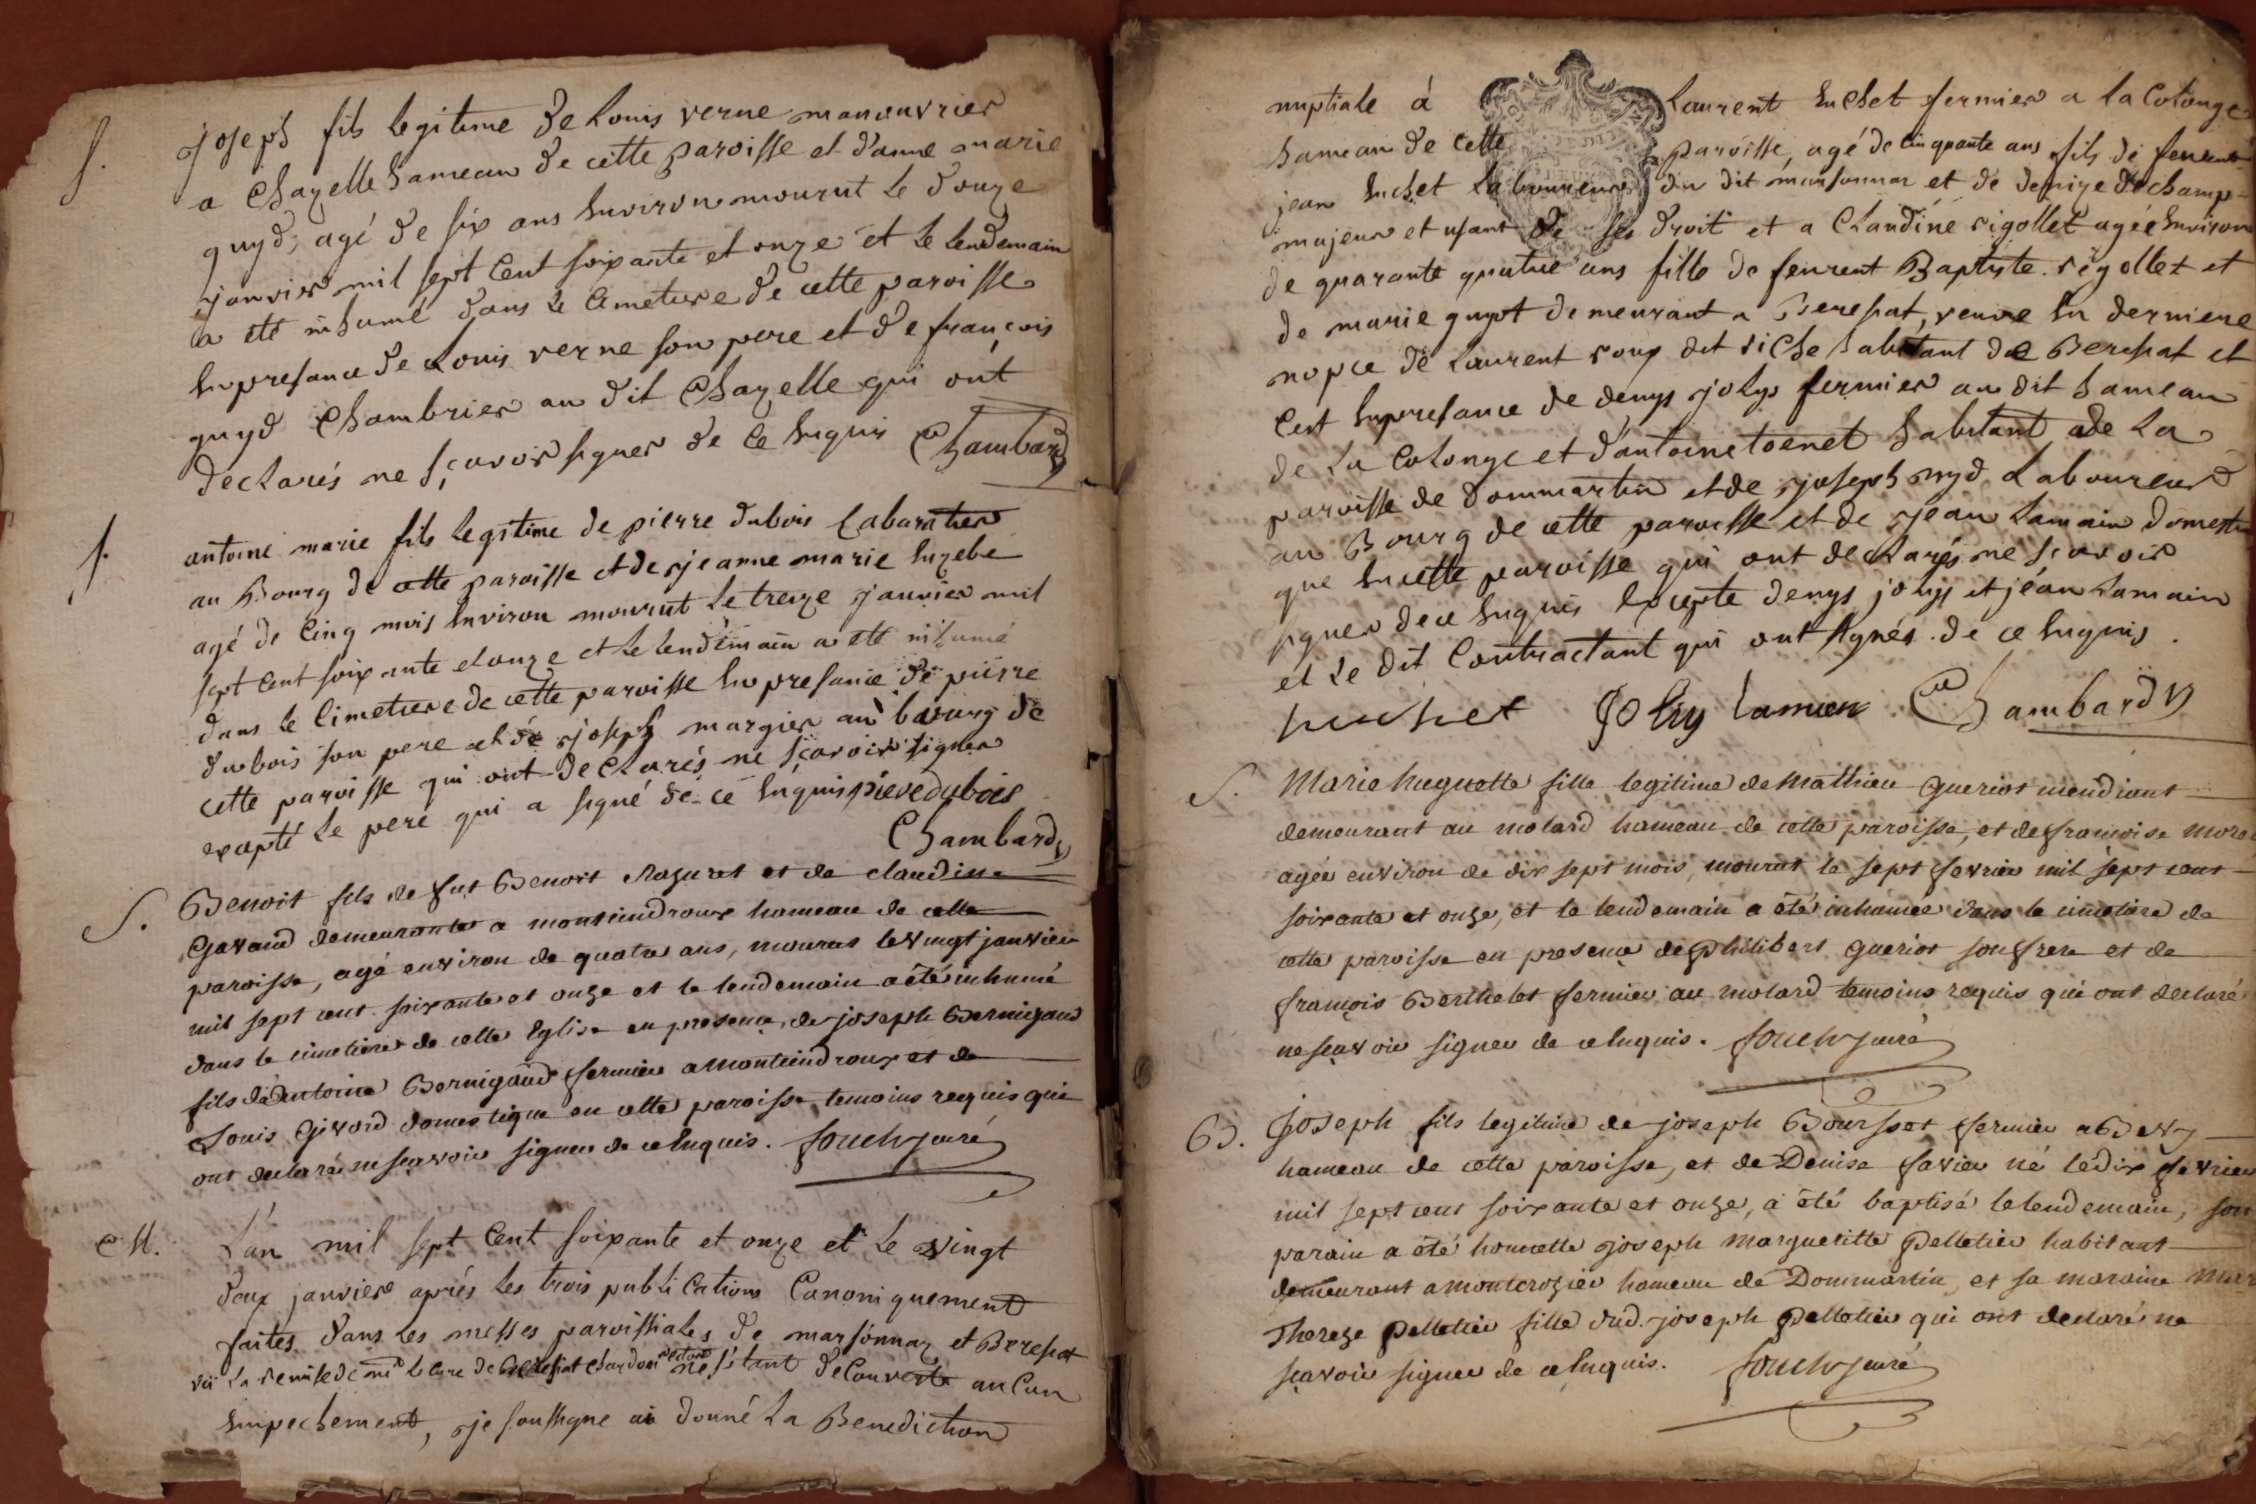 S.
joseph fils legitime de Louis verne manouvrier
a Chazelle hameau de cette paroisse et d'anne marie
guyd, agé de six ans environ mourut le douze
janvier mil sept Cent soixante et onze et le lendemain
a eté inhumé dans le Cimetiere de cette paroisse
en presance de Louis verne son pere et de françois
guyd Chambrier au dit Chazelle qui ont
declarés ne sçavoir signer de ce enquis Chambard
S.
antoine marie fils legitime de pierre dubois Cabaratier
au Bourg de cette paroisse et de jeanne marie
agé de Cinq mois environ mourut le treize janvier mil
sept Cent soixante et onze et le lendemain a eté inhumé
dans le Cimetiere de cette paroisse en presance de pierre
dubois son pere et de joseph margier au bourg de
cette paroisse qui ont declarés ne sçavoir signer
excepté le pere qui a signé de ce enquis piere dubois
Chambard
S.
Benoit fils de fut Benoit et de claudine
Gavand demeurante a montcindroux hameau de cette
paroisse, agé environ de quatre ans, mourut le vingt janvier
mil sept cent soixante et onze et le lendemain a été inhumé
dans le cimetiere de cette Eglise en presence, de joseph Bernigaud
fils d'Antoine Bernigaud fermier a montcindroux et de
Louis Givord domestique en cette paroisse temoins requis qui
ont declaré ne sçavoir signer de ce enquis. curé
M.
L'an mil sept Cent soixante et onze et le vingt
deux janvier aprés les trois publications Canoniquement
faites dans les messes paroissiales de marsonnaz et Beresiat
vü la remise de mr le cure de Beresiat ne s'etant decouverte aucun
empechement, je soussigne ai donné la Benediction
nuptiale á Laurent huchet fermier a la Colonge
hameau de cette paroisse, agé de cinquante ans fils de feu
jean huchet laboureur du dit marsonnaz et de denize dechamp
majeur et usant de ses droit et a Claudine rigollet agée environ
de quarante quatre ans fille de Baptiste rigollet et
de marie guyot demeurant a Beresiat, veuve en derniere
nopce de Laurent roux dit riche habitant de Beresiat et
c'est en presance de denys jolys fermier au dit hameau
de la Colonge et d'antoine toenet habitant de la
paroisse de dommartin et de joseph nyd Laboureur
au Bourg de cette paroisse et de jean Lamain domesti
que en cette paroisse qui ont declarés ne sçavoir
signer de ce enquis excepte denys jolys et jean Lamain
et le dit Contractant qui ont signés de ce enquis.
huchet Joly Lamien Chambard
S.
Marie huguette fille legitime de Mathieu Gueriot mendiant
demeurant au molard hameau de cette paroisse, et de françoise
agée environ de dix sept mois, mourut le sept fevrier mil sept cent
soixante et onze, et le lendemain a été inhumée dans le cimetiere de
cette paroisse en presence de philibert gueriot son frere et de
françois Berthelet fermier au molard temoins requis qui ont declaré
ne sçavoir signer de ce enquis. curé
B.
Joseph fils legitime de joseph Boursset fermier a Bevy
hameau de cette paroisse, et de Denise favier né le dix fevrier
mil sept cent soixante et onze, a été baptisé le lendemain, son
parain a été honnette joseph margueritte Pelletier habitant
demeurant a montcrozier hameau de Dommartin, et sa maraine
Thereze Pelletier fille dud. joseph Pelletier qui ont declaré ne
sçavoir signer de ce enquis. curé